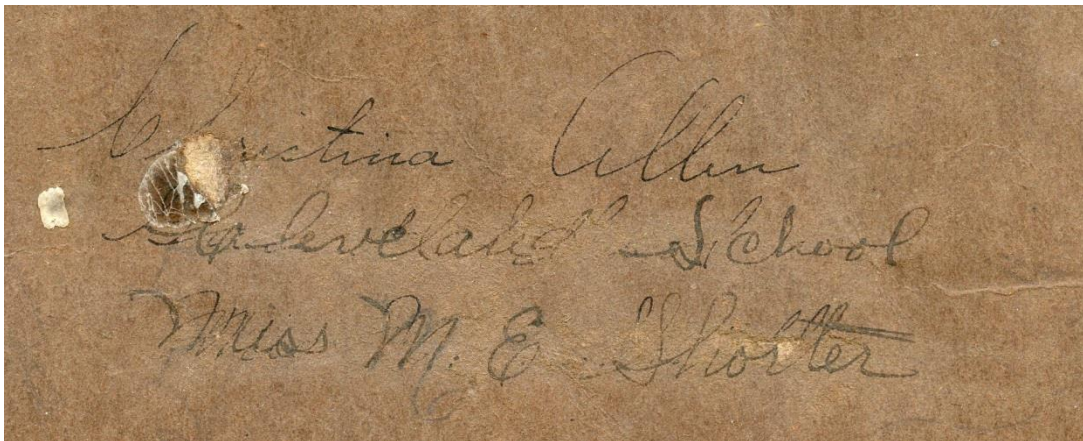 Christina Allen
Cleveland School
Miss M. E. Shorter